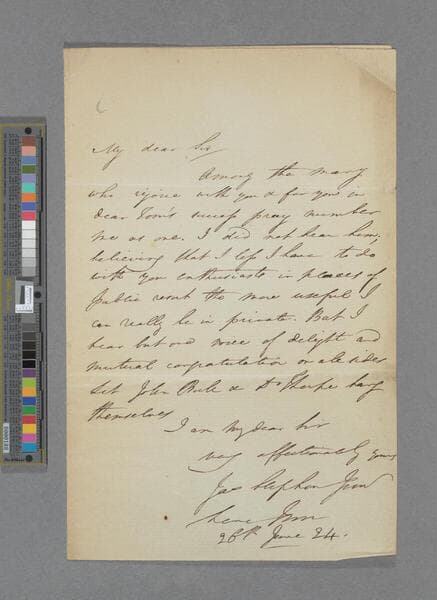 My dear Sir
Among the many
who rejoice with you & for you in
dear Tom's success pray number
me as one. I did not hear him,
believing that the less I have to do
with you enthusiasts in places of
public resort the more useful I
can really be in private. But I
hear but one voice of delight and
mutual congratulation on all sides
Let John Bull & Dr Thorpe hang
themselves
I am my dear Sir
very affectionately yours
Jas Stephen Junr
26th June 24.